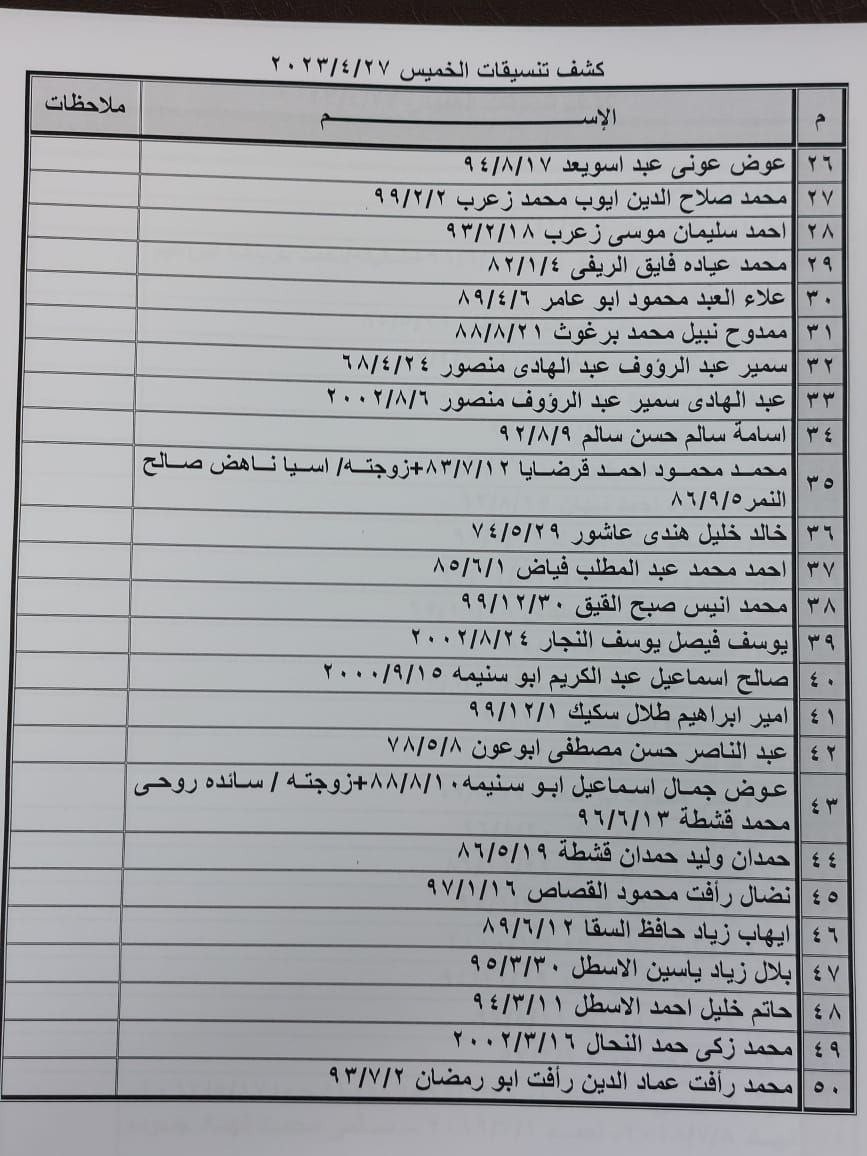 كشف تنسيقات الخميس ٢٠٢٣/٤/٢٧
م الإســـــــــــم ملاحظات
٢٦ عوض عونى عبد اسويعد ٩٤/٨/١٧
٢٧ محمد صلاح الدين ايوب محمد زعرب ٩٩/٢/٢
٢٨ احمد سليمان موسى زعرب ٩٣/٢/١٨
٢٩ محمد عياده فايق الريفى ٨٢/١/٤
٣٠ علاء العبد محمود ابو عامر ٨٩/٤/٦
٣١ ممدوح نبيل محمد برغوث ٨٨/٨/٢١
٣٢ سمير عبد الرؤوف عبد الهادى منصور ٦٨/٤/٢٤
٣٣ عبد الهادى سمير عبد الرؤوف منصور ٢٠٠٢/٨/٦
٣٤ اسامة سالم حسن سالم ٩٢/٨/٩
٣٥ محمد محمود احمد قرضايا ٨٣/٧/١٢+زوجته/ اسيا ناهض صالح
النمر٨٦/٩/٥
٣٦ خالد خليل هندى عاشور ٧٤/٥/٢٩
٣٧ احمد محمد عبد المطلب فياض ٨٥/٦/١
٣٨ محمد انيس صبح القيق ٩٩/١٢/٣٠
٣٩ يوسف فيصل يوسف النجار ٢٠٠٢/٨/٢٤
٤٠ صالح اسماعيل عبد الكريم ابو سنيمه ٢٠٠٠/٩/١٥
٤١ امير ابراهيم طلال سكيك ٩٩/١٢/١
٤٢ عبد الناصر حسن مصطفى ابوعون ٧٨/٥/٨
٤٣ عوض جمال اسماعيل ابو سنيمه٨٨/٨/١٠+زوجته / سائده روحى
محمد قشطة ٩٦/٦/١٣
٤٤ حمدان وليد حمدان قشطة ٨٦/٥/١٩
٤٥ نضال رأفت محمود القصاص ٩٧/١/١٦
٤٦ ايهاب زياد حافظ السقا ٨٩/٦/١٢
٤٧ بلال زياد ياسين الاسطل ٩٥/٣/٣٠
٤٨ حاتم خليل احمد الاسطل ٩٤/٣/١١
٤٩ محمد زكى حمد النحال ٢٠٠٢/٣/١٦
٥٠ محمد رأفت عماد الدين رأفت ابو رمضان ٩٣/٧/٢